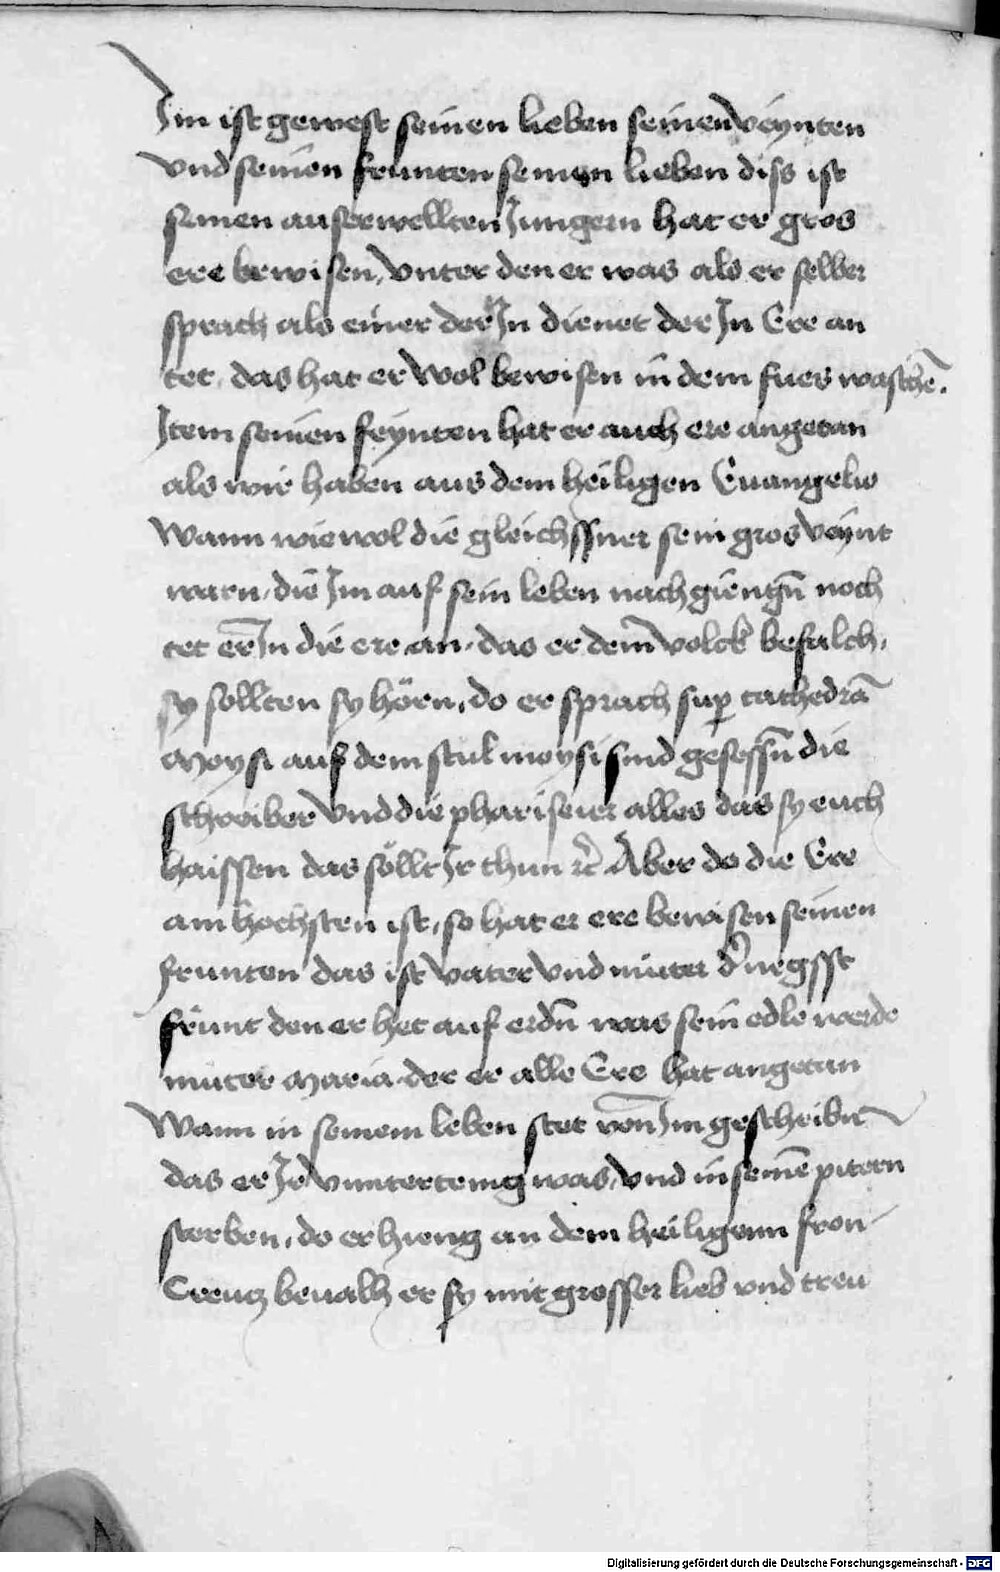 Im ist gewest seinen lieben seinen veynten
vnd seinen frunten seinen lieben diss ist
seinen auserwellten Jungern hat er gros
ere bewisen, vnter den er was als er selber
sprach als einer der In dienet der In Ere an
tet, das hat er wol bewisen in dem fues waschē.
Item seinen feynten hat er auch ere angetan
als wir haben aus dem heiligen Euangelio
Wann wiewol die gleichssner sein gros veynt
warn, die Im auf sein leben nach giengn̄ noch
tet er In die ere an, das er dem volck befalch,
sy sollten sy hörn, do er sprach sup cathedrā
Moysi auf dem stul moysi sind gesessn̄ die
schreiber vnd die phariseier alles das sy euch
haissen das söllt Ir thun rc̄ Aber do die Ere
am hochsten ist, so hat er ere bewisen seinen
frunten das ist vater vnd muter d' negsst
frünt den er het auf erdn̄ was sein edle werde
muter Maria der er alle Ere hat angetan
Wann in seinem leben stet von Im geschribn
das er Ir vnntertenig was, vnd in seinē pitern
sterben, do er hieng an dem heiligenn fron-
Creutz beualh er sy mit grosser lieb vnd treu
Digitalisierung gefördert durch die Deutsche Forschungsgemeinschaft - DFG